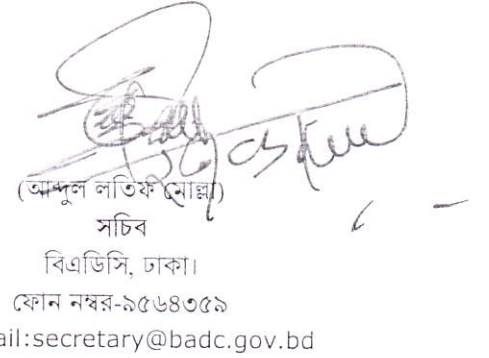 (আব্দুল লতিফ মোল্লা)
সচিব
বিএডিসি, ঢাকা।
ফোন নম্বর-৯৫৬৪৩৫৯
ail:secretary@badc.gov.bd